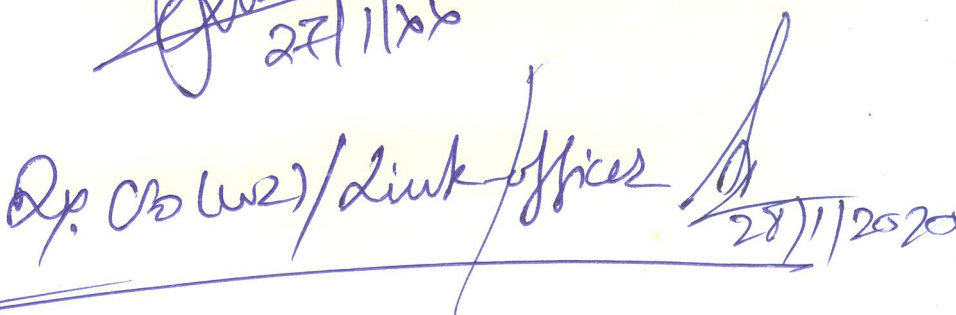 27/1/xx
Dy. CSO (WZ) / Link officer
28/1/2020